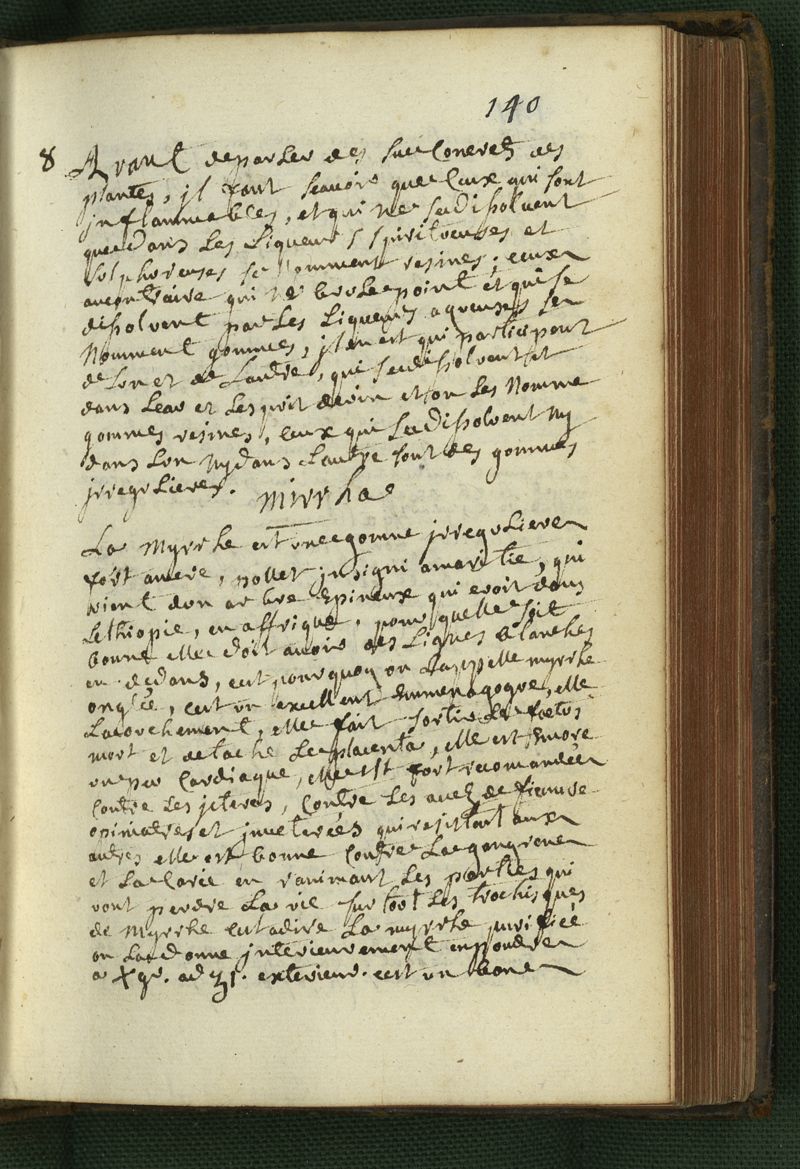 140
8 Avant de parler des suc Concrets des
plantes, jl faut scavoir que Ceux qui sont
jnflammables, et qui ne se dissolvent
que dans Les Liqueurs spiritueuses et
sulphoreuses se nomment resines, ceux
aucontraire qui ne brule point et qui se
dissolvent par Les Liqueurs aqueuses se
Nomment gommes, jl en est qui participent
de Lun et de Lautre, qui se dissolvent et
dans Leau et Lesprit de vin et on Les Nomme
gommes resines, Ceux qui se dissolvent Ny
dans Lun Ny dans Lautre sont des gommes
jrregulieres.
mirrha
La Myrrhe est une gomme jrreguliere
fort amere, pollet jnsigni amaritie, qui
vient dun arbre Epineux qui croit dans
Lethiopie, en affrique, pour quelle soit
bonne elle doit avoir des Lignes blanches
en dedans, cest pourquoy on Lappelle myrrhe
onglée, cest un excellent Emmenagogue, elle
Lacouchement, elle fait sortir Le foetus
mort et detache Le placenta, elle est Encore
un peu Cardiaque, elle est fort recomandée
Contre Les jcteres, Contre Les de fievre
opiniatres et jnveterées qui resistent aux
autres elle est bonne Contre La gangrene
et La Carie en ranimant Les parties qui
vont perdre La vie sur tout Les trochisques
de Myrrhe cest adire La myrrhe purifiée
on La donne jnterieurement en poudre
a Xgr. ad ʒj. exterieur. cest un bone